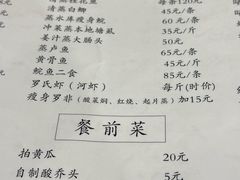 清蒸白鲫 45元/条
蒸水库瘦身鲩 60元/条
冲菜蒸本地塘虱 35元/斤
姜汁蒸大肠头 50元
蒸卢鱼 65元/条
黄骨鱼 45元/条
鲩鱼二食 85元/条
罗氏虾(河虾) 每斤(时价)
瘦身罗非(酸菜焖、红烧、起片蒸)加15元
餐前菜
拍黄瓜 20元
自制酸荞头 5元